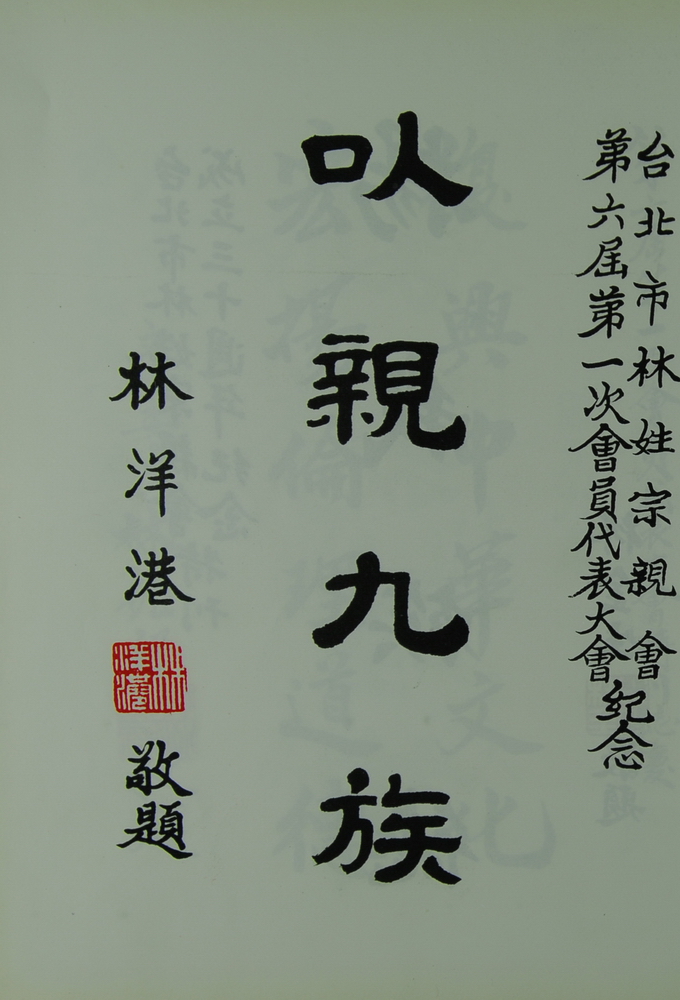 台北市林姓宗親會
第六屆第一次會員代表大會紀念
以親九族
林洋港
林洋港
敬題